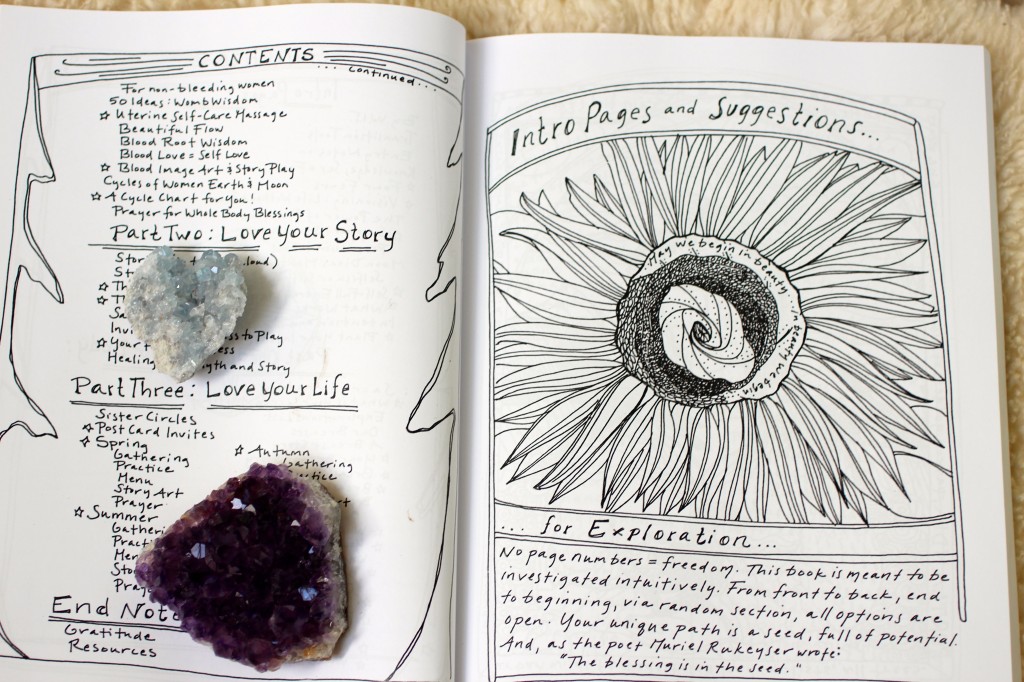 CONTENTS
... continued...
For non-bleeding women
50 Ideas: Womb Wisdom
☆ Uterine Self-Care Massage
Beautiful Flow
Blood Root Wisdom
Blood Love = Self Love
☆ Blood Image Art & Story Play
Cycles of Women Earth & Moon
☆ A Cycle Chart for You!
Prayer for Whole Body Blessings
Part Two: Love Your Story
☆
☆
to Play
☆ Your
and Story
Part Three: Love Your Life
Sister Circles
☆ Post Card Invites
☆ Spring
Gathering
Practice
Menu
Story Art
Prayer
☆ Summer
☆ Autumn
Gathering
End
Gratitude
Resources
Intro Pages and Suggestions...
May we begin in beauty
in beauty we begin
... for Exploration...
No page numbers = freedom. This book is meant to be
investigated intuitively. From front to back, end
to beginning, via random section, all options are
open. Your unique path is a seed, full of potential.
And, as the poet Muriel Rukeyser wrote:
"The blessing is in the seed."